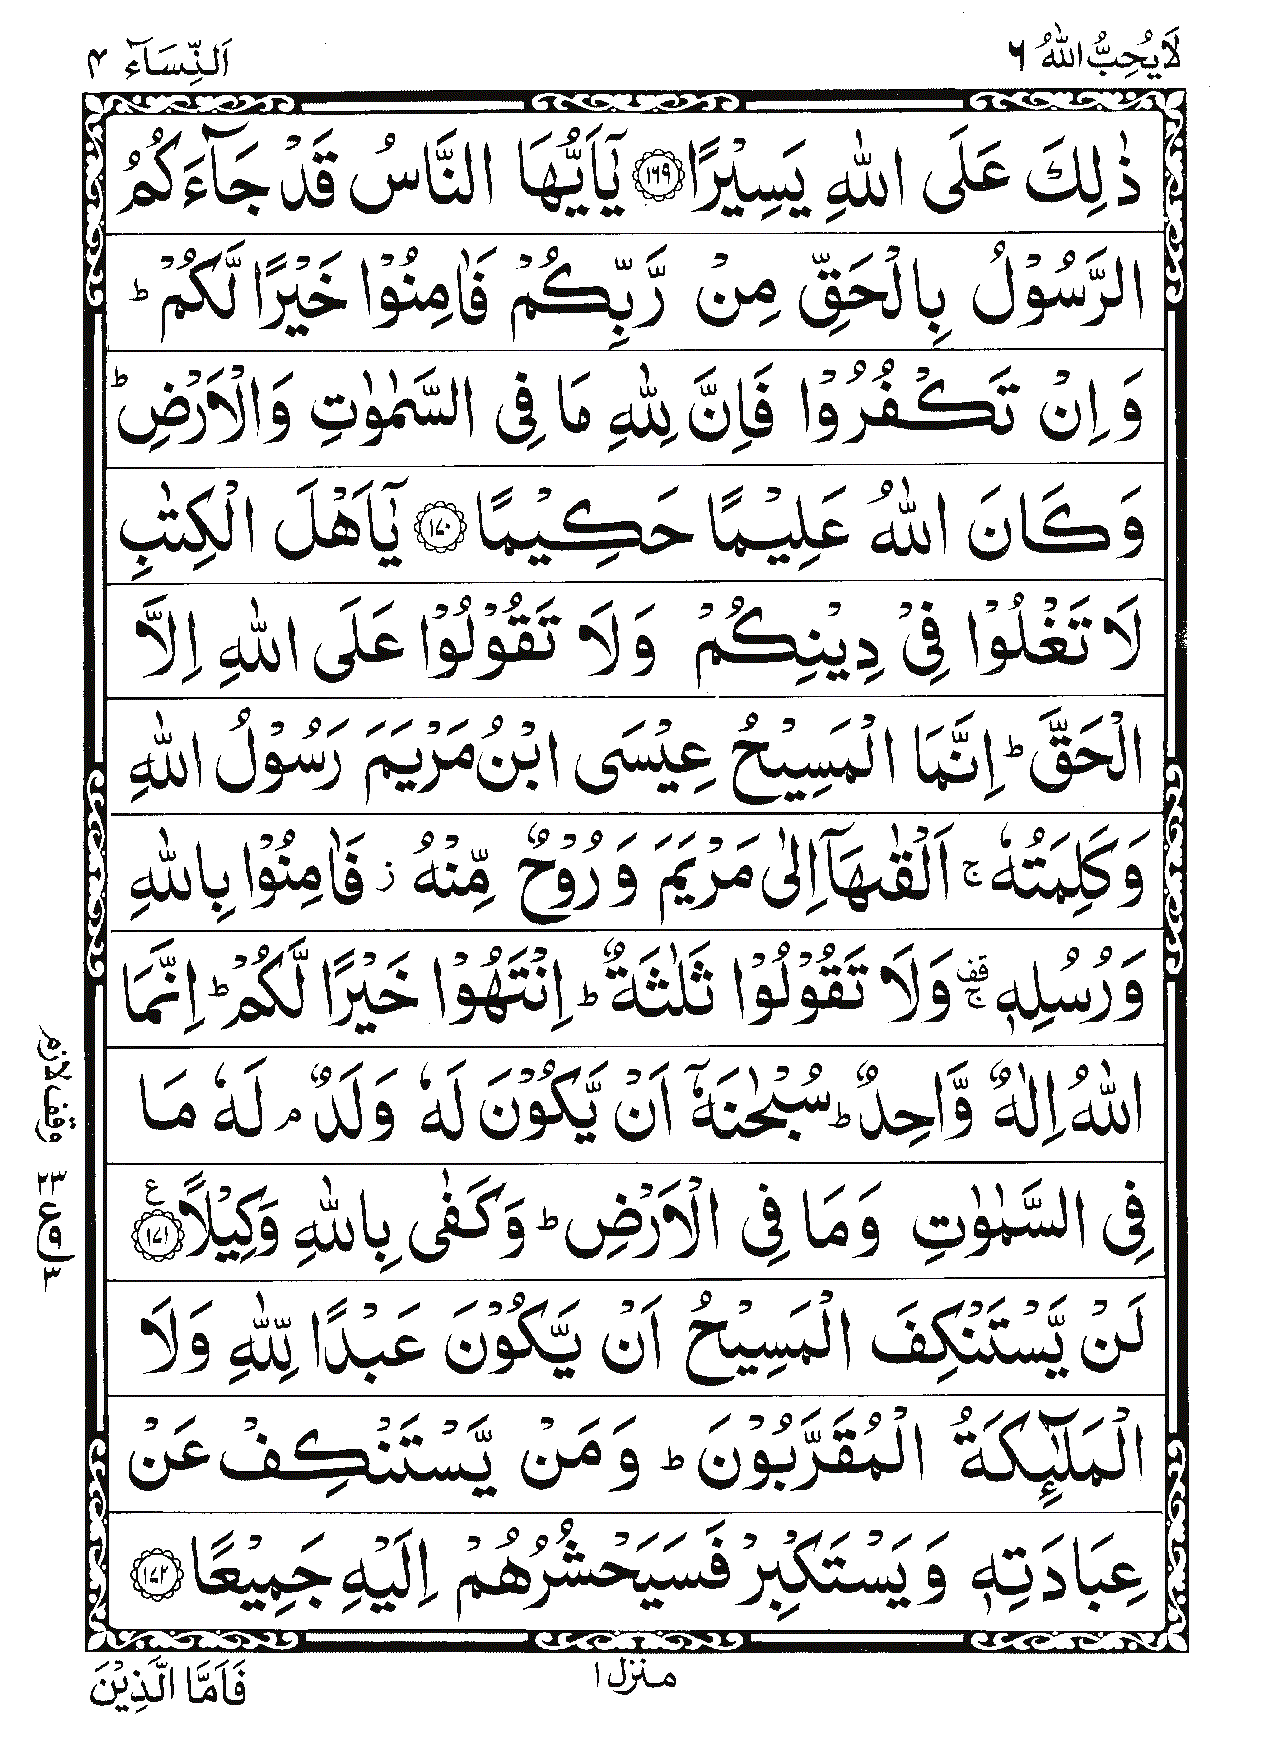 لَا يُحِبُّ اللّٰهُ ٦
اَلنِّسَآء ۴
ذٰلِكَ عَلَى اللّٰهِ يَسِيْرًا ﴿١٦٩﴾ يٰۤاَيُّهَا النَّاسُ قَدْ جَآءَكُمُ
الرَّسُوْلُ بِالْحَقِّ مِنْ رَّبِّكُمْ فَاٰمِنُوْا خَيْرًا لَّكُمْ ؕ
وَ اِنْ تَكْفُرُوْا فَاِنَّ لِلّٰهِ مَا فِى السَّمٰوٰتِ وَالْاَرْضِ ؕ
وَ كَانَ اللّٰهُ عَلِيْمًا حَكِيْمًا ﴿١٧٠﴾ يٰۤاَهْلَ الْكِتٰبِ
لَا تَغْلُوْا فِىْ دِيْنِكُمْ وَلَا تَقُوْلُوْا عَلَى اللّٰهِ اِلَّا
الْحَقَّ ؕ اِنَّمَا الْمَسِيْحُ عِيْسَى ابْنُ مَرْيَمَ رَسُوْلُ اللّٰهِ
وَ كَلِمَتُهٗ ۚ اَلْقٰىهَاۤ اِلٰى مَرْيَمَ وَ رُوْحٌ مِّنْهُ ز فَاٰمِنُوْا بِاللّٰهِ
وَ رُسُلِهٖ ۚ قف وَلَا تَقُوْلُوْا ثَلٰثَةٌ ؕ اِنْتَهُوْا خَيْرًا لَّكُمْ ؕ اِنَّمَا
اللّٰهُ اِلٰهٌ وَّاحِدٌ ؕ سُبْحٰنَهٗۤ اَنْ يَّكُوْنَ لَهٗ وَلَدٌ ۘ لَهٗ مَا
فِى السَّمٰوٰتِ وَ مَا فِى الْاَرْضِ ؕ وَكَفٰى بِاللّٰهِ وَكِيْلًا ﴿١٧١﴾ ع
لَنْ يَّسْتَنْكِفَ الْمَسِيْحُ اَنْ يَّكُوْنَ عَبْدًا لِّلّٰهِ وَلَا
الْمَلٰٓئِكَةُ الْمُقَرَّبُوْنَ ؕ وَ مَنْ يَّسْتَنْكِفْ عَنْ
عِبَادَتِهٖ وَ يَسْتَكْبِرْ فَسَيَحْشُرُهُمْ اِلَيْهِ جَمِيْعًا ﴿١٧٢﴾
وقف لازم
٢٣
ع
٣
منزل ١
فَاَمَّا الَّذِيْنَ